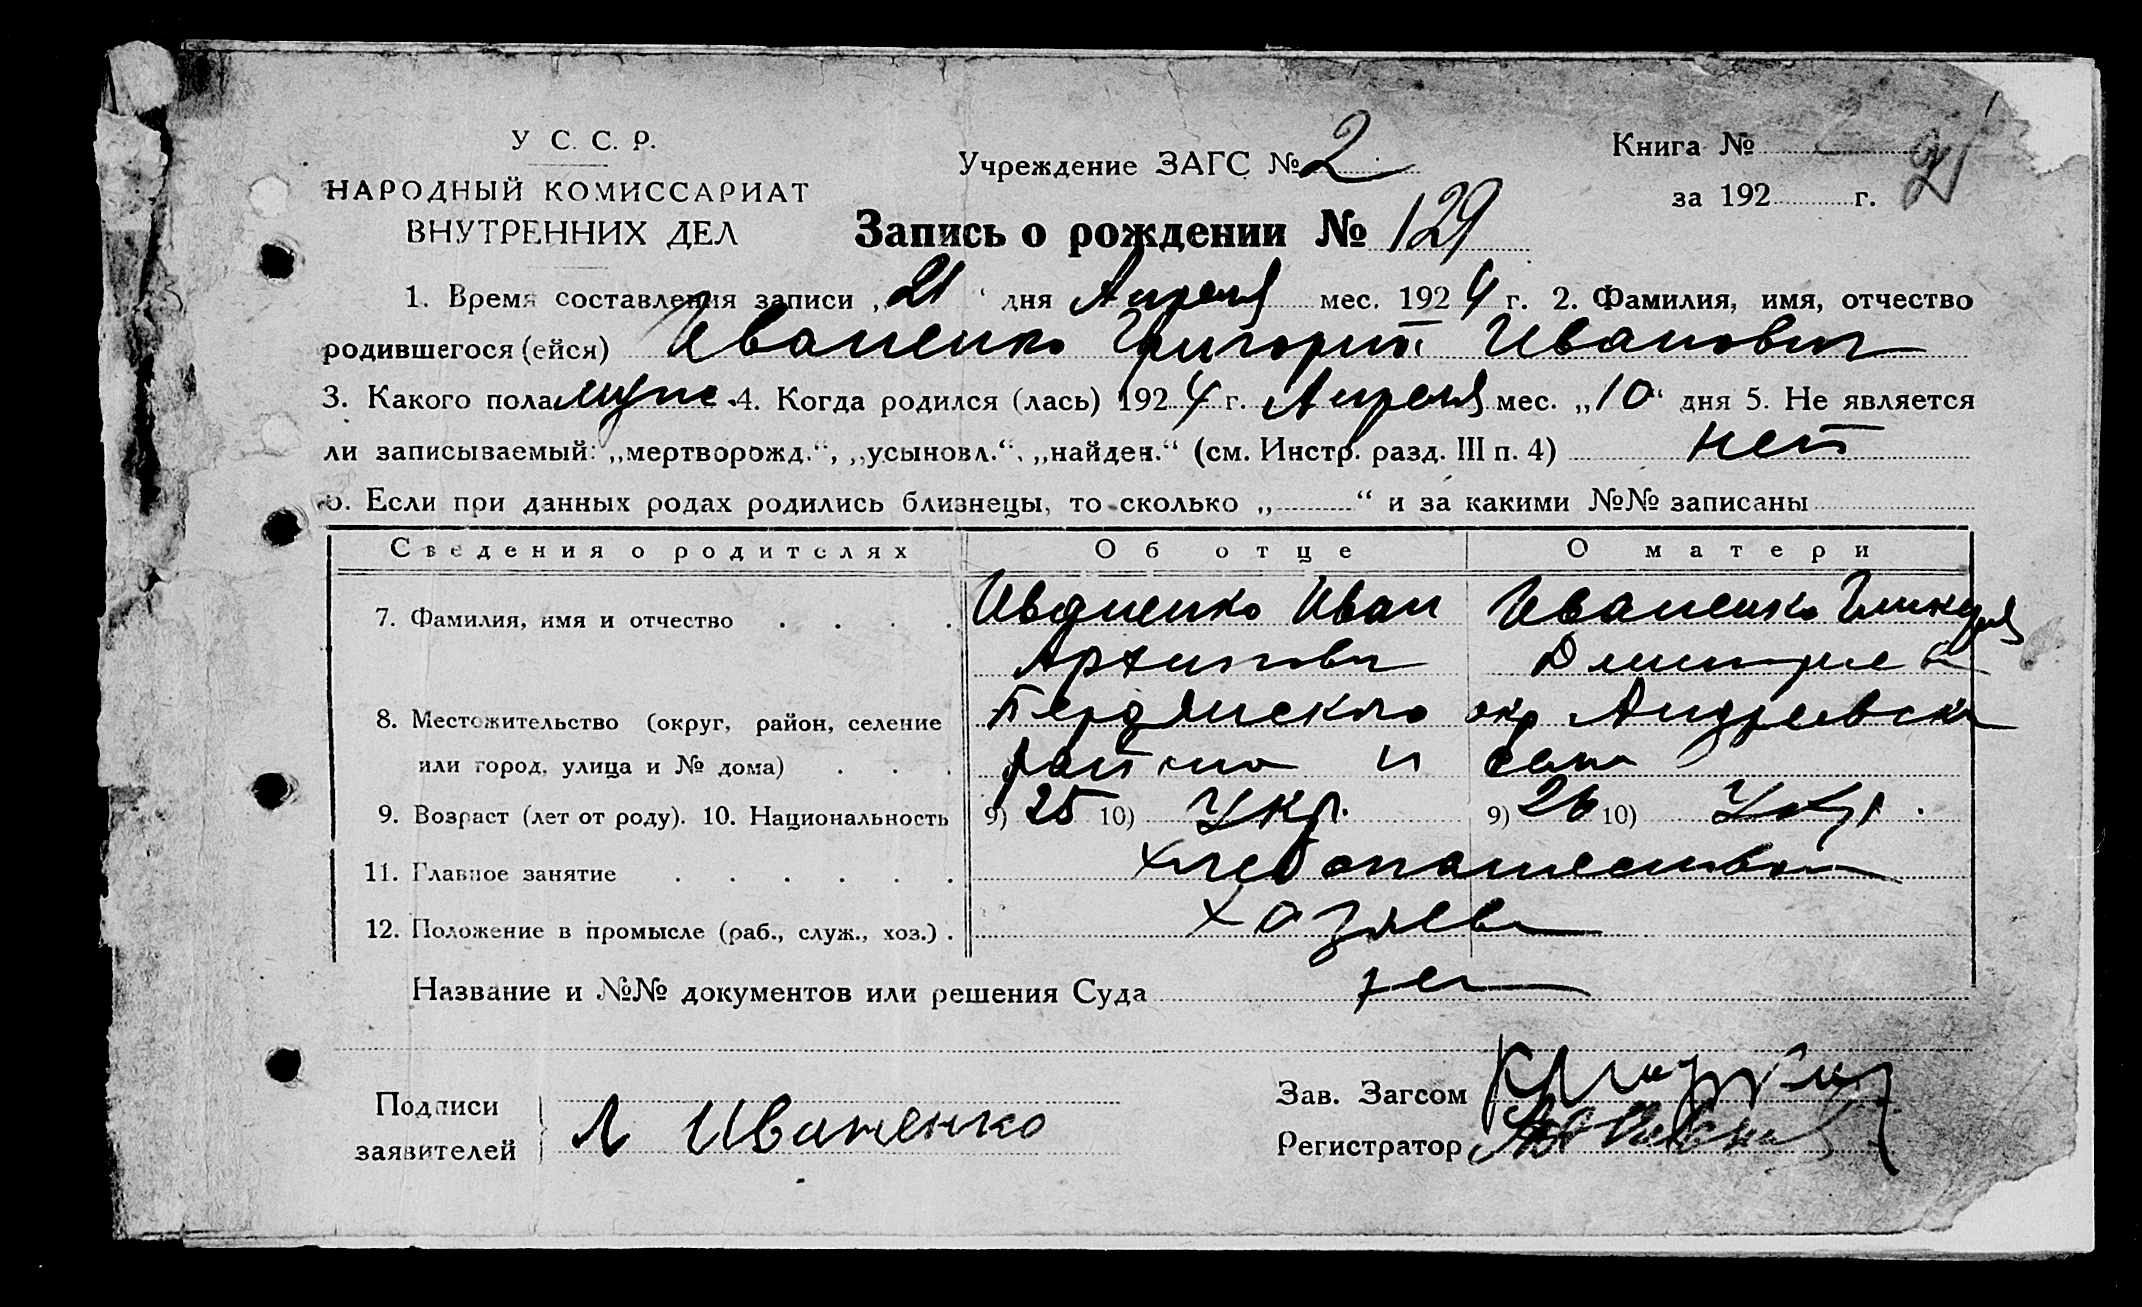 У С. С. Р.
НАРОДНЫЙ КОМИССАРИАТ
ВНУТРЕННИХ ДЕЛ
Учреждение ЗАГС № 2
Книга №
21
за 192 г.
Запись о рождении № 129
1. Время составления записи „21“ дня Апреля мес. 1924 г. 2. Фамилия, имя, отчество
родившегося (ейся) Иваненко Григорий Иванович
3. Какого пола муж. 4. Когда родился (лась) 1924 г. Апреля мес. „10“ дня 5. Не является
ли записываемый: „мертворожд.“, „усыновл.“, „найден.“ (см. Инстр. разд. III п. 4) нет
6. Если при данных родах родились близнецы, то сколько „ “ и за какими №№ записаны
Сведения о родителях Об отце О матери
7. Фамилия, имя и отчество Иваненко Иван Иваненко
Архипович Дмитриев
8. Местожительство (округ, район, селение Бердянского окр Андреевск
или город, улица и № дома) района и села
9. Возраст (лет от роду). 10. Национальность 9) 25 10) Укр. 9) 26 10) Укр.
11. Главное занятие Хлебопашество
12. Положение в промысле (раб., служ., хоз.) Хозяева
Название и №№ документов или решения Суда
Подписи
заявителей Иваненко
Зав. Загсом
Регистратор